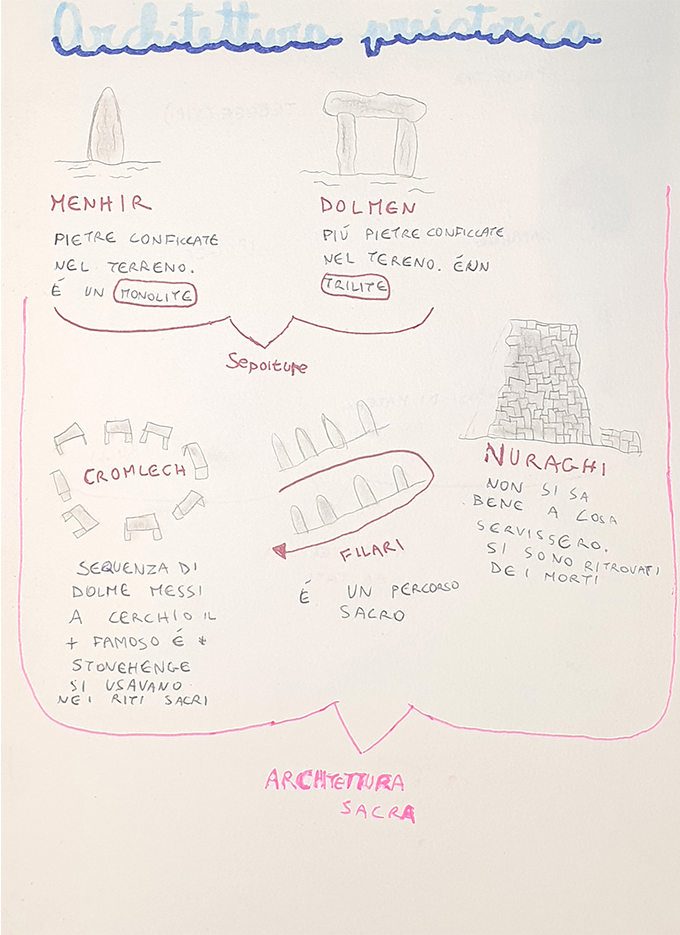 Architettura preistorica
MENHIR
PIETRE CONFICCATE
NEL TERRENO.
É UN MONOLITE
DOLMEN
PIÚ PIETRE CONFICCATE
NEL TERENO. É UN
TRILITE
Sepolture
CROMLECH
SEQUENZA DI
DOLME MESSI
A CERCHIO IL
+ FAMOSO É *
STONEHENGE
SI USAVANO
NEI RITI SACRI
FILARI
É UN PERCORSO
SACRO
NURAGHI
NON SI SA
BENE A COSA
SERVISSERO.
SI SONO RITROVATI
DEI MORTI
ARCHITETTURA
SACRA